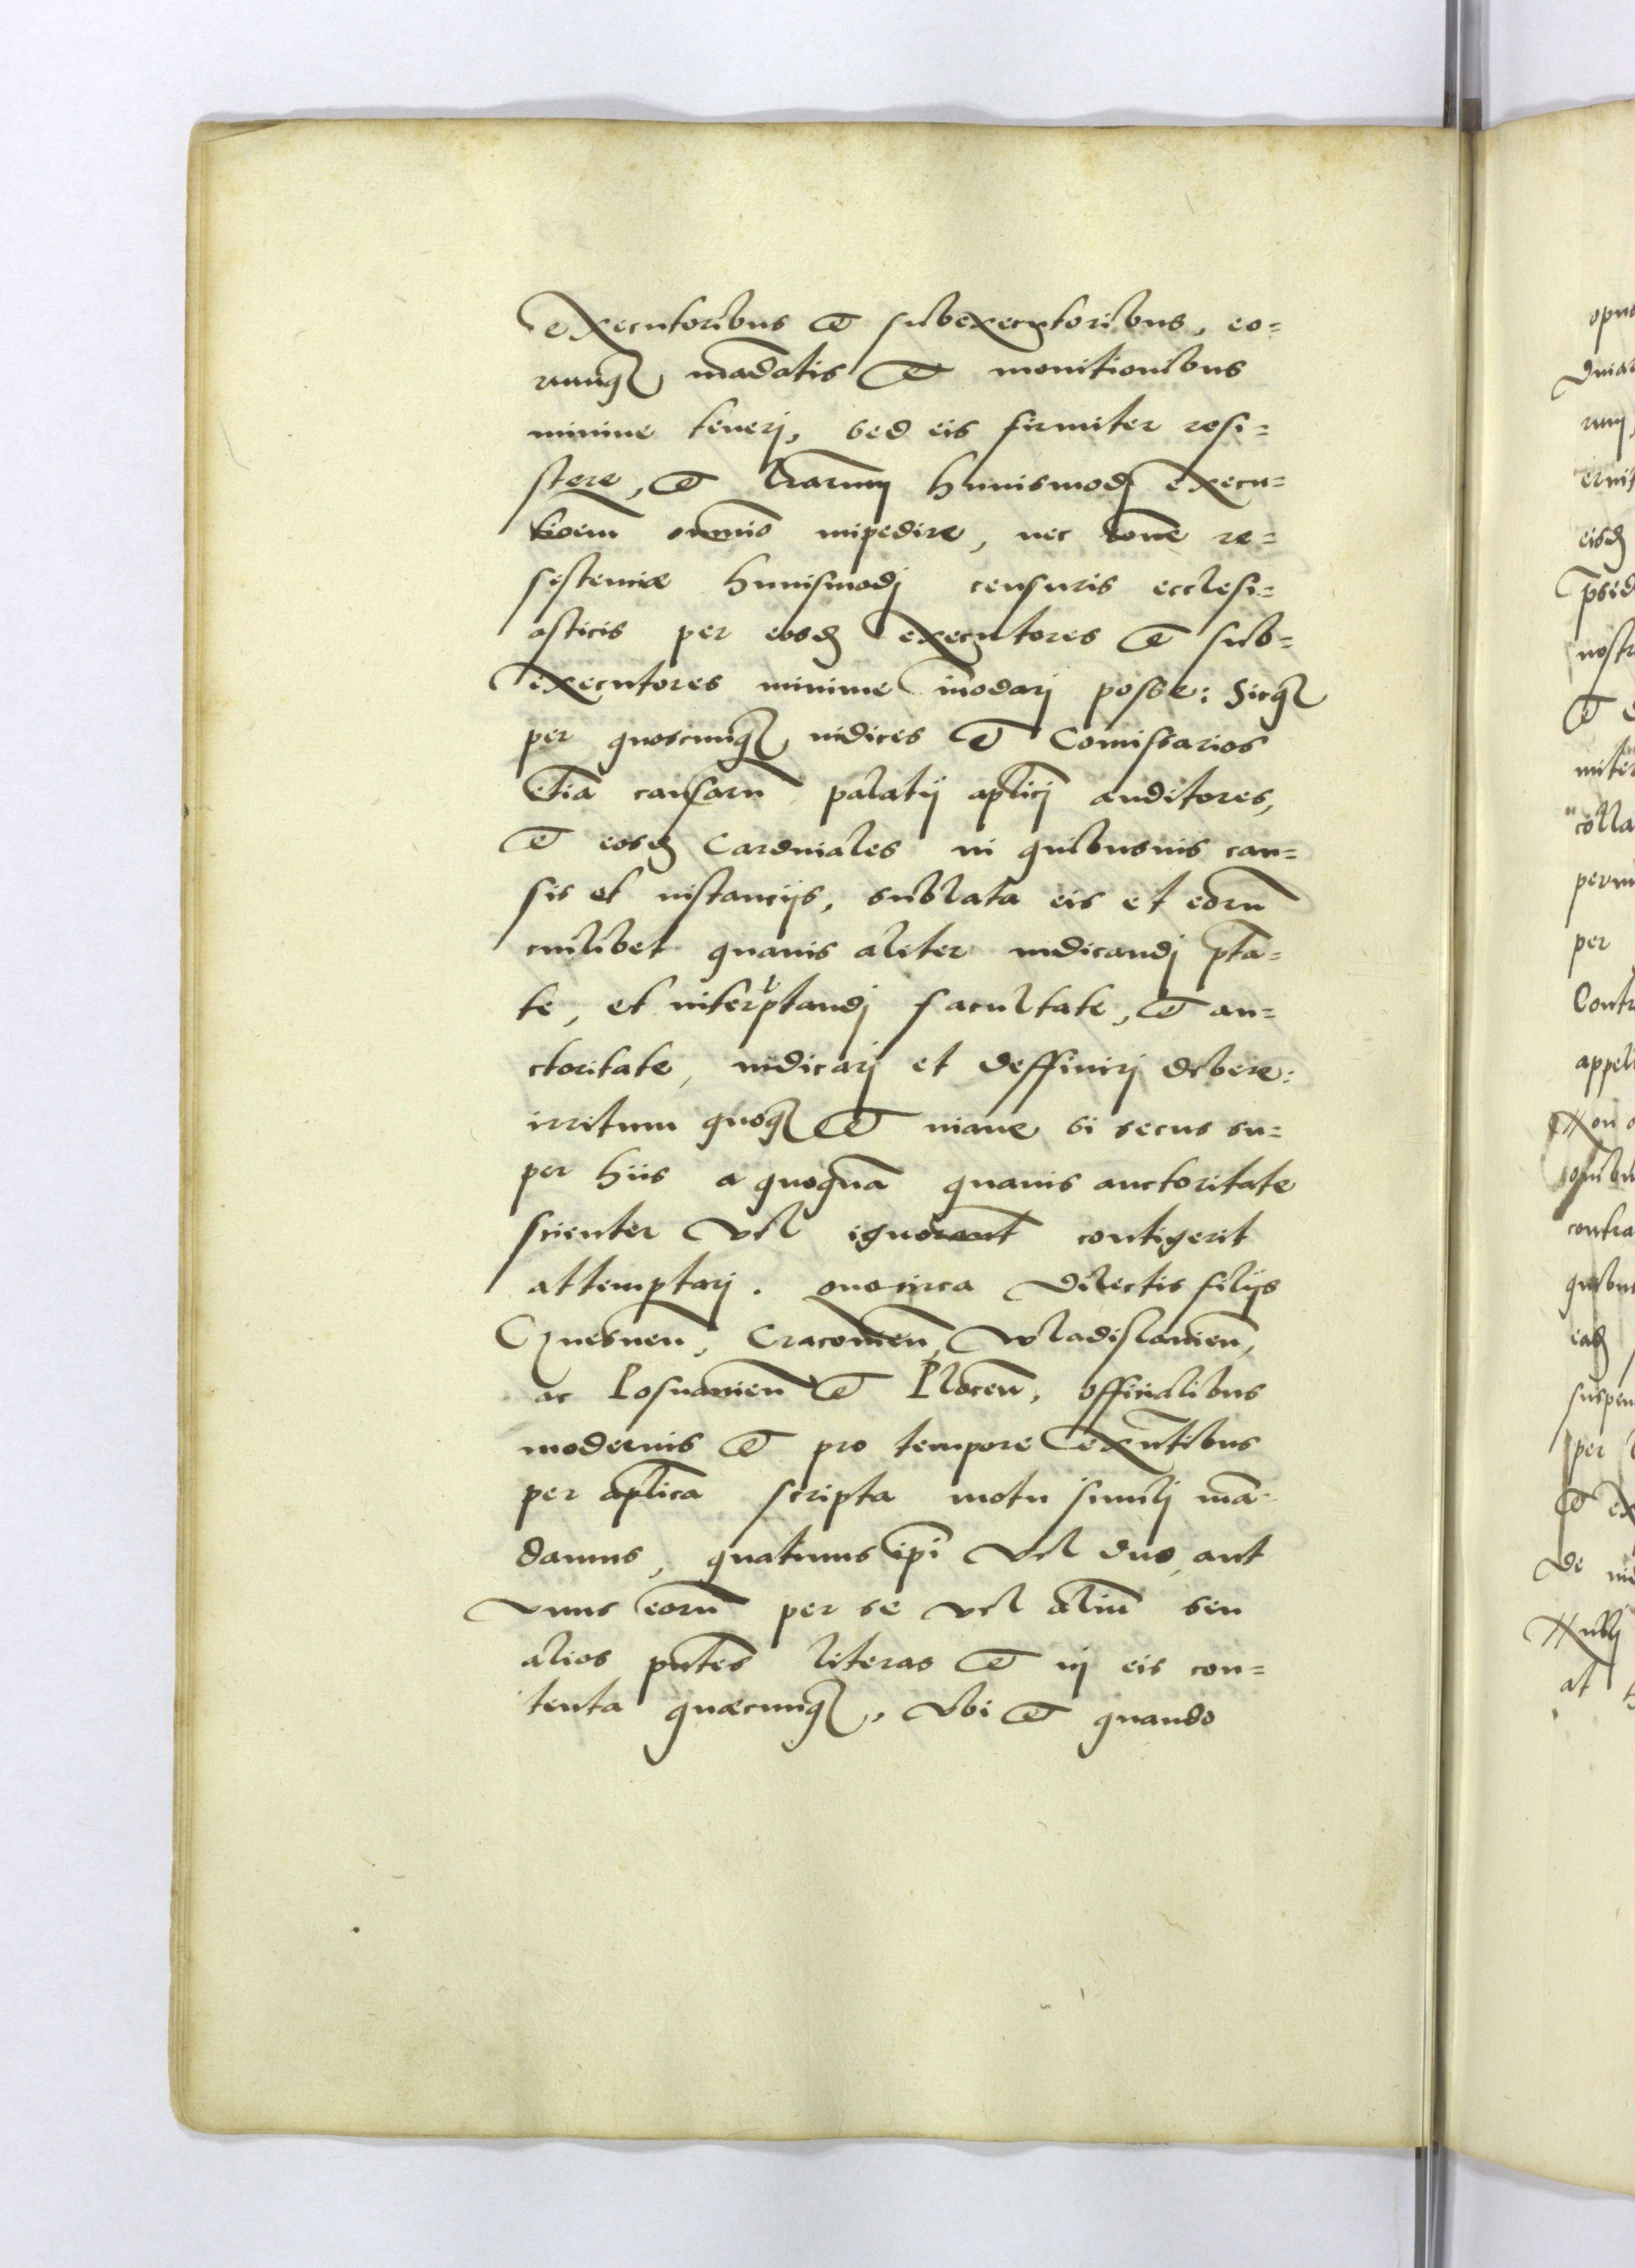 executoribus et subexecutoribus, eo=
rumq₃ mādatis et monitionibus
minime tenerj, sed eis firmiter resi=
stere, et lr̄arum huiusmodj execu=
tioem̄ omnio impedire, nec rōne re=
sistentiæ huiusmodj censuris ecclesi=
asticis per eosd executores et sub=
executores minime īnodarj posse: Sicq₃
per quoscunq₃ iudices et Comissarios
etiā causarū palatij ap̄licj auditores,
et eosd Cardinales in quibusuis cau=
sis et instancijs, sublata eis et eorū
cuilibet quauis aliter iudicandj p̄ta=
te, et interp̄tandj facultate, et au=
ctoritate, iudicarj et deffinirj debere:
irritum quoq₃ et inane si secus su=
per hiis a quoquā quauis auctoritate
scienter vel ignorant̄ contigerit
attemptarj. Quocirca dilectis filijs
Gnesnen̄, Cracouien̄, Wladislauien̄,
ac Posnanien̄ et Plocen̄, officialibus
modernis et pro tempore exn̄tibus
per ap̄lica scripta motu similj mā=
damus, quatinus ip̄i vel duo, aut
vnus eorū per se vel aliū seu
alios pn̄tes literas et in eis con=
tenta quæcunq₃, vbi et quando
opus
rum,
eisd
nostr
et
colla
per
Contr
appell
contra
quibus
ead
suspen
per
et ex
de
at